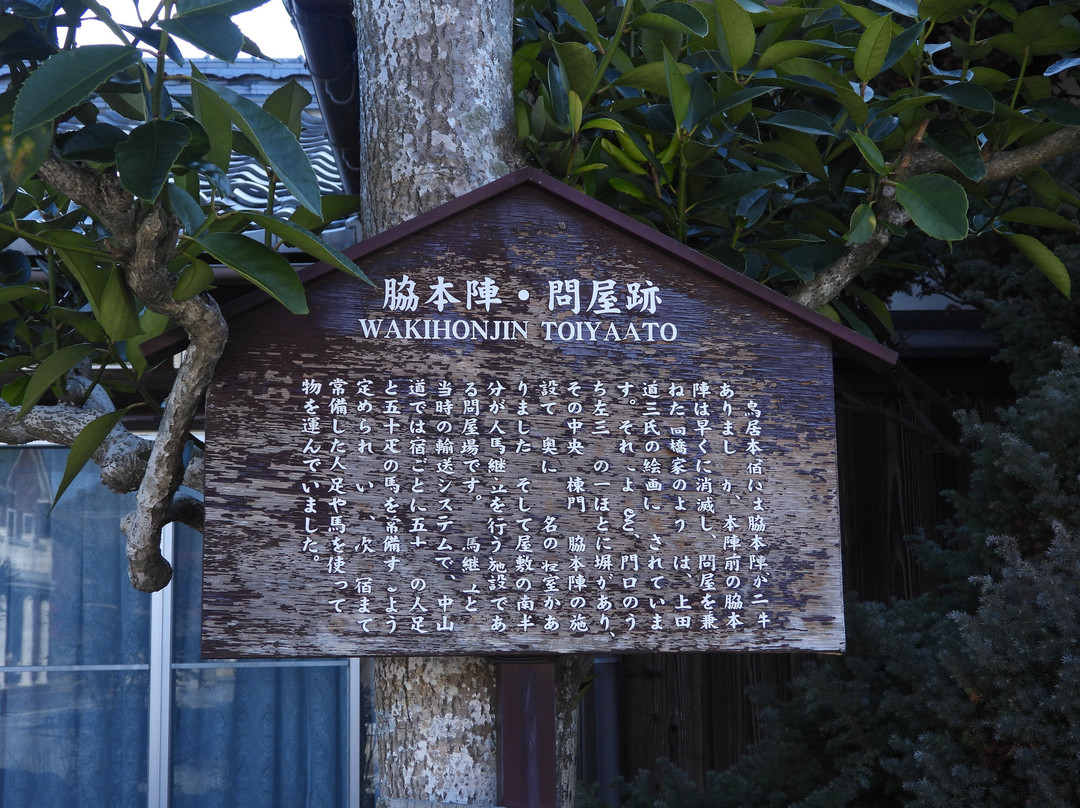 脇本陣・問屋跡
WAKIHONJIN TOIYAATO
鳥居本宿には脇本陣が二軒
ありまし が、本陣前の脇本
陣は早くに消滅し、問屋を兼
ねた高橋家のよう は、上田
道三氏の絵画に されていま
す。それ よ と、門口のう
ち左三 の一ほどに塀があり、
その中央 棟門 脇本陣の施
設で 奥に 名の 室があ
りました そして屋敷の南半
分が人馬継立を行う施設であ
る問屋場です。 馬継 と
当時の輸送システムで、中山
道では宿ごとに五十 の人足
と五十疋の馬を常備するよう
定められ い 、次 宿まで
常備した人足や馬を使って
物を運んでいました。